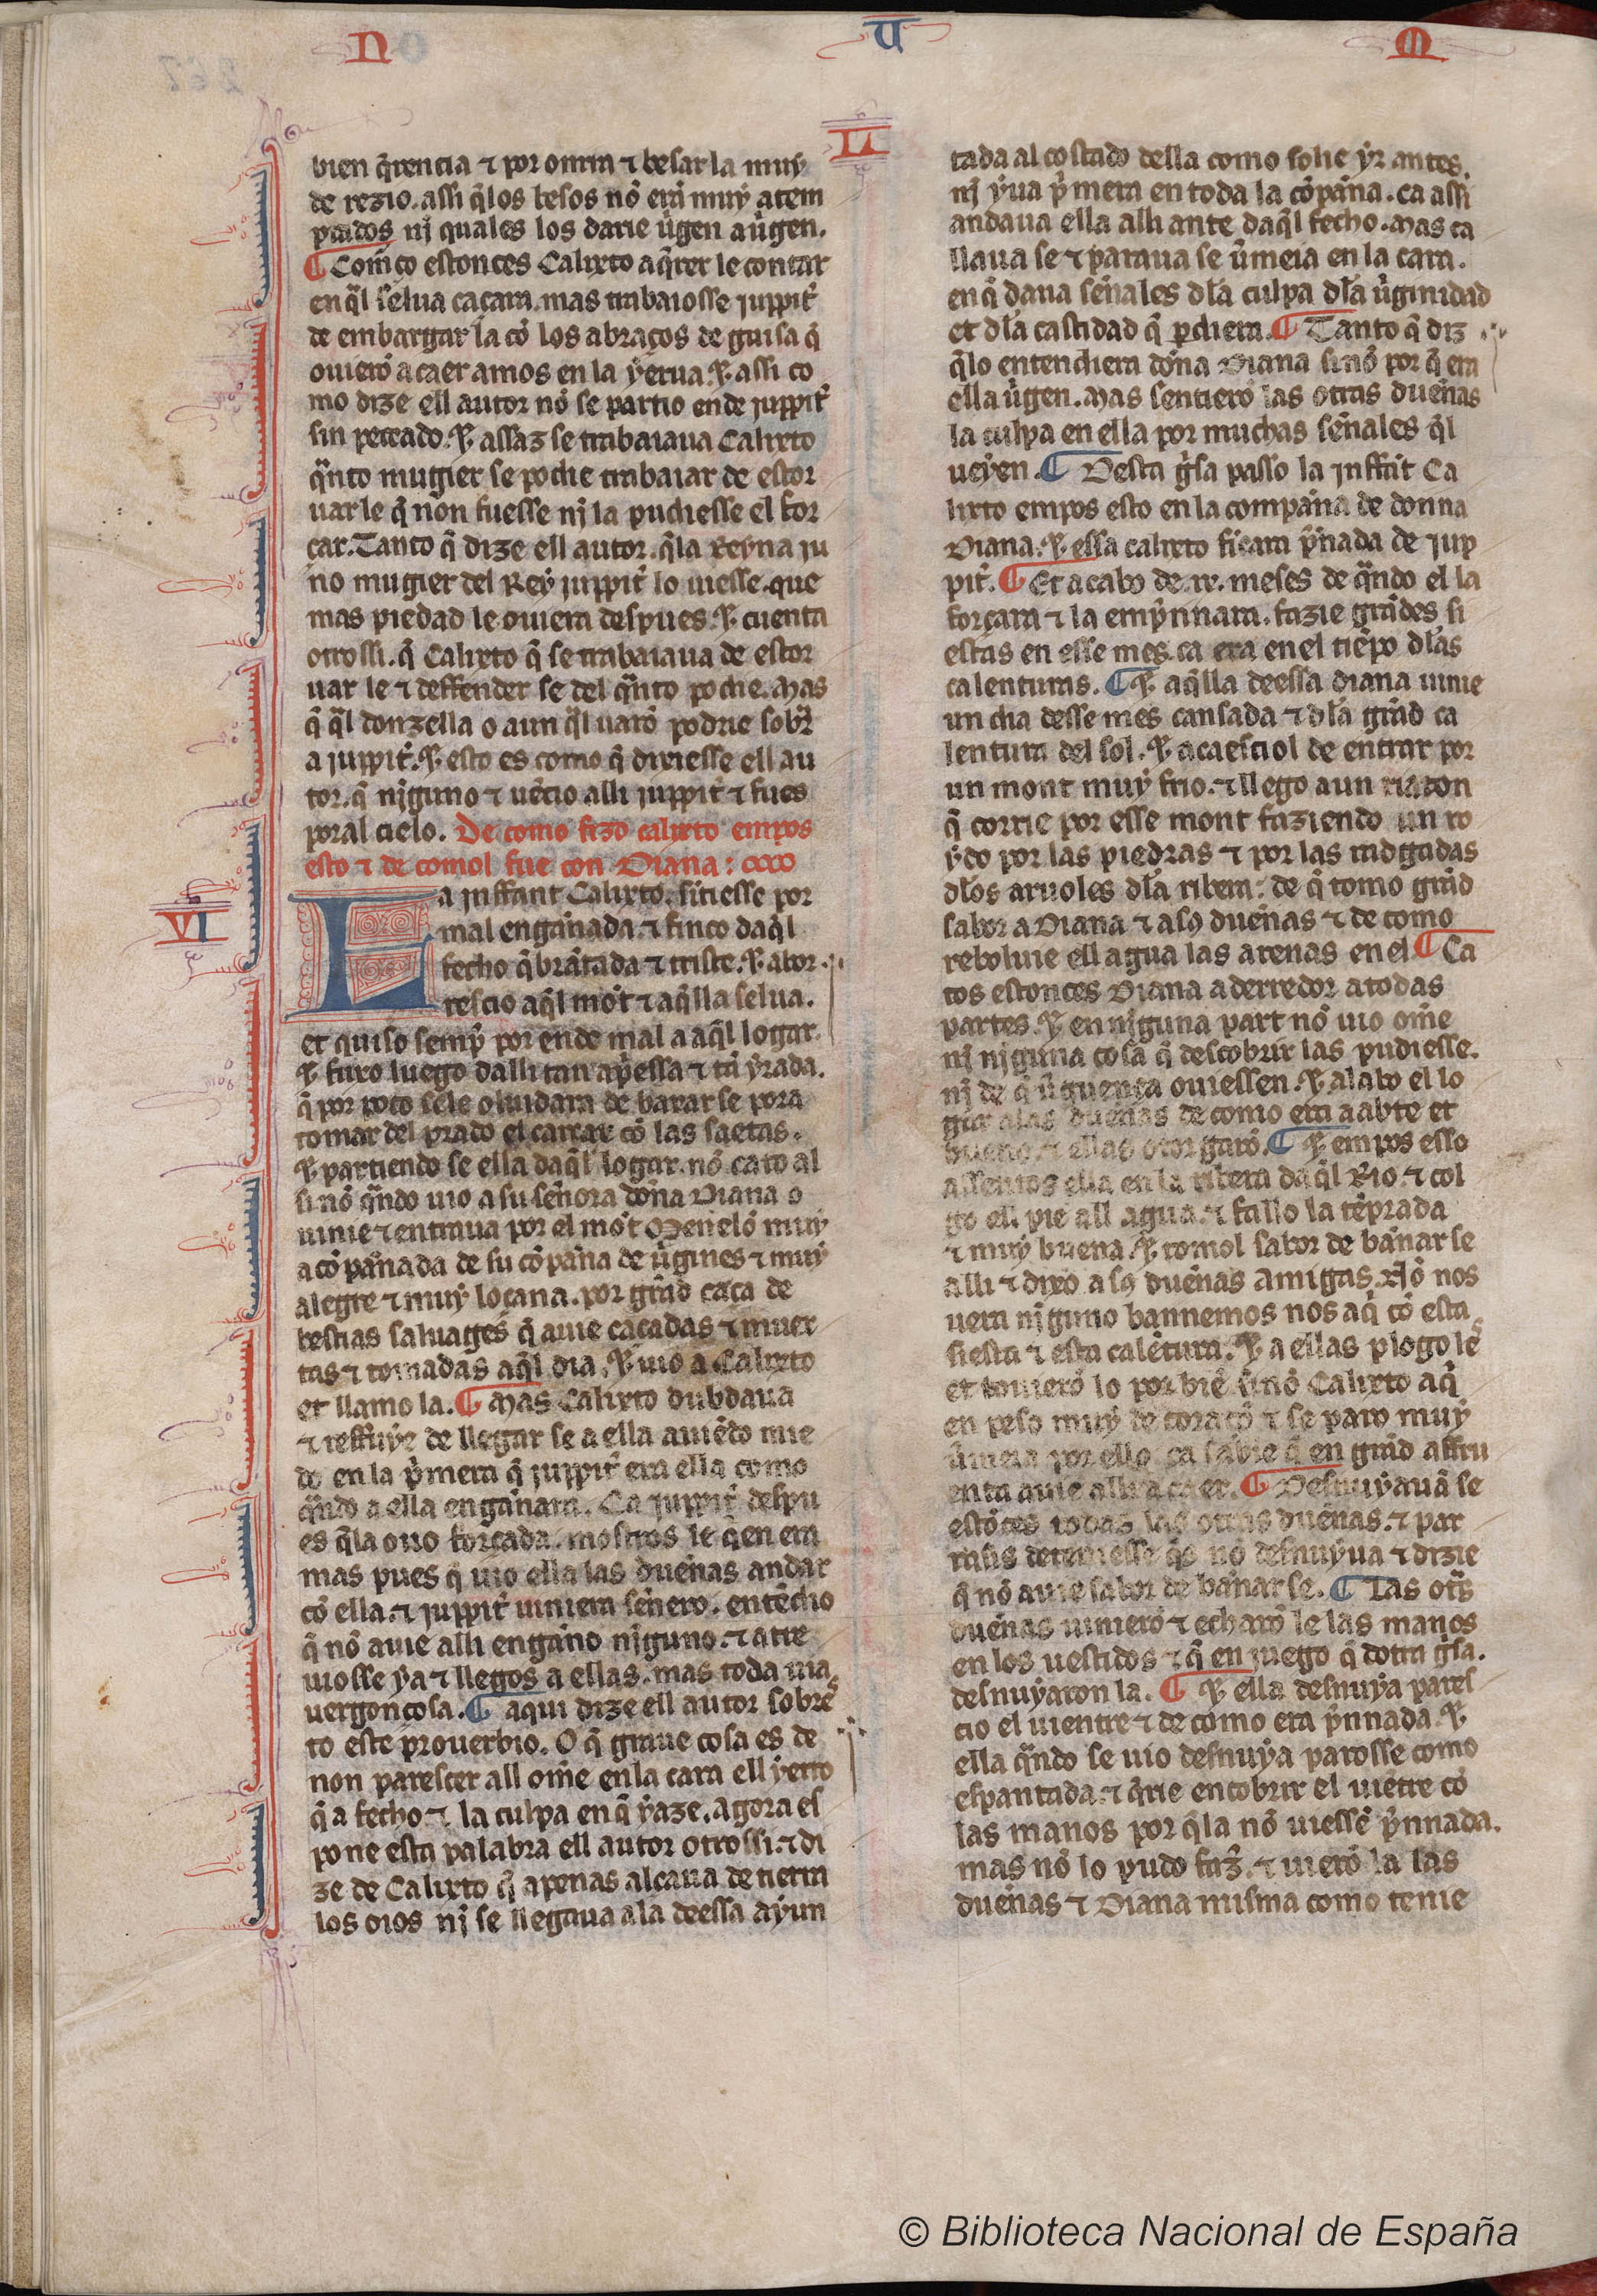 N U M
LI
bien q̃rencia ⁊ por onrra ⁊ besar la muy
de rezio. assi q̃ los besos nõ erã muy atem
prados nj quales los darie uĩgen a uĩgen.
¶ Com̃ço estonces Calixto a q̃rer le contar
en q̃l selua caçara. mas trabaiosse juppit̃
de embargar la cõ los abraços de guisa q̃
ouierõ a caer amos en la yerua. ⁊ assi co
mo dize ell autor nõ se partio ende juppit̃
sin peccado. ⁊ assaz se trabaiaua Calixto
q̃nto mugier se podie trabaiar de estor
uar le q̃ non fuesse nj la pudiesse el for
çar. Tanto q̃ dize ell autor. q̃ la Reyna ju
no mugier del Rey juppit̃ lo uiesse. que
mas piedad le ouiera despues. ⁊ cuenta
otrossi. q̃ Calixto q̃ se trabaiaua de estor
uar le ⁊ deffender se del q̃nto podie. Mas
q̃ q̃l donzella o aun q̃l uarõ podrie sobr̃
a juppit̃. ⁊ esto es como q̃ dixiesse ell au
tor. q̃ njguno ⁊ uẽcio alli juppit̃ ⁊ fues
poral cielo. De como fizo calixto empos
esto ⁊ de comol fue con Diana: cxxo
VI
La jnffant Calixto. fitiesse por
mal engañada. ⁊ finco daq̃l
fecho q̃brãtada ⁊ triste. ⁊ abor
rescio aq̃l mõt ⁊ aq̃lla selua.
et quiso semp̃ por ende mal a aq̃l logar.
⁊ fuxo luego dalli tan ap̃essa ⁊ tã yrada.
q̃ por poco sele oluidara de baxar se pora
tomar del prado el carcax cõ las saetas.
⁊ partiendo se ella daq̃l logar. nõ cato al
si nõ q̃ndo uio a su señora doña Diana o
uinie ⁊ entraua por el mõt Menelõ muy
acõpañada de su cõpaña de uĩgines ⁊ muy
alegre ⁊ muy loçana. por grãd caça de
bestias saluages q̃ auie caçadas ⁊ muer
tas ⁊ tomadas aq̃l dia. ⁊ uio a Calixto
et llamo la. ¶ Mas Calixto dubdaua
⁊ reffuye de llegar se a ella auiẽdo mie
do en la p̃mera q̃ juppit̃ era ella como
q̃ndo a ella engañara. Ca juppit̃ despu
es q̃ la ouo forçada. mostros le q̃en era
mas pues q̃ uio ella las dueñas andar
cõ ella. ⁊ juppit̃ uiniera señero. entẽdio
q̃ nõ auie alli engaño njguno. ⁊ atre
uiosse ya ⁊ llegos a ellas. mas toda uia
uergonçosa. ¶ aqui dize ell autor sobre
to este prouerbio. O q̃ graue cosa es de
non parescer all om̃e en la cara ell yerro
q̃ a fecho ⁊ la culpa en q̃ yaze. Agora es
pone esta palabra ell autor otrossi. ⁊ di
ze de Calixto q̃ apenas alçaua de tierra
los oios nj se llegaua a la deessa ayun
tada al costado della como solie yr antes.
nj yua p̃mera en toda la cõpaña. ca assi
andaua ella alli ante daq̃l fecho. Mas ca
llaua se ⁊ paraua se ũmeia en la cara.
en q̃ daua señales dl̃a culpa dl̃a uĩginidad
et dl̃a castidad q̃ p̱diera. ¶ Tanto q̃ diz
q̃ lo entendiera doña Diana si nõ por q̃ era
ella uĩgen. Mas sentierõ las otras dueñas
la culpa en ella por muchas señales q̃l
ueyen. ¶ Desta g̃sa passo la jnffãt Ca
lixto empos esto en la compaña de donna
Diana. ⁊ essa calixto ficara p̃ñada de jup
pit̃. ¶ Et a cabo de .ix. meses de q̃ndo el la
forçara ⁊ la emp̃nnara. fazie grãdes si
estas en esse mes. ca era en el tiẽpo dl̃as
calenturas. ¶ ⁊ aq̃lla deessa diana uinie
un dia desse mes cansada ⁊ dl̃a grãd ca
lentura del sol. ⁊ acaesciol de entrar por
un mont muy frio. ⁊ llego a un riaton
q̃ corrie por esse mont faziendo un ro
ydo por las piedras ⁊ por las radgadas
dl̃os aruoles dl̃a ribera: de q̃ tomo grãd
sabor a Diana ⁊ a sus dueñas ⁊ de como
reboluie ell agua las arenas en el ¶ Ca
tos estonces Diana a derredor a todas
partes. ⁊ en njguna part nõ uio om̃e
nj njguna cosa q̃ descobrir las pudiesse.
nj de q̃ ũguença ouiessen. ⁊ alabo el lo
gar a las dueñas de como era aabte et
bueno. ⁊ ellas otorgarõ. ¶ ⁊ empos esso
assentos ella en la ribera daq̃l Rio. ⁊ col
go ell pie all agua. ⁊ fallo la tẽprada
⁊ muy buena. ⁊ tomol sabor de bañar se
alli ⁊ dixo a sus dueñas amigas. Nõ nos
uera njguno bannemos nos aq̃ cõ esta
siesta ⁊ esta calẽtura. ⁊ a ellas plogo les
et touierõ lo por biẽ. si nõ Calixto aq̃
en peso muy de coraçõ ⁊ se paro muy
ũmeia por ello ca sabie q̃ en grãd affru
enta auie alli a caer. ¶ Desnuyauã se
estõces todas las otras dueñas. ⁊ par
rasis detouiesse q̃s nõ desnuyua ⁊ dizie
q̃ nõ auie sabor de bañar se. ¶ Las otr̃s
dueñas uinierõ ⁊ echarõ le las manos
en los uestidos ⁊ q̃ en juego q̃ dotra g̃sa.
desnuyaron la. ¶ ⁊ ella desnuya pares
cio el uientre ⁊ de como era p̃nnada. ⁊
ella q̃ndo se uio desnuya parosse como
espantada. ⁊ q̃rie encobrir el uiẽtre cõ
las manos por q̃ la nõ uiessẽ p̃nnada.
mas nõ lo pudo faz̃. ⁊ uierõ la las
dueñas ⁊ Diana misma como tenie
© Biblioteca Nacional de España